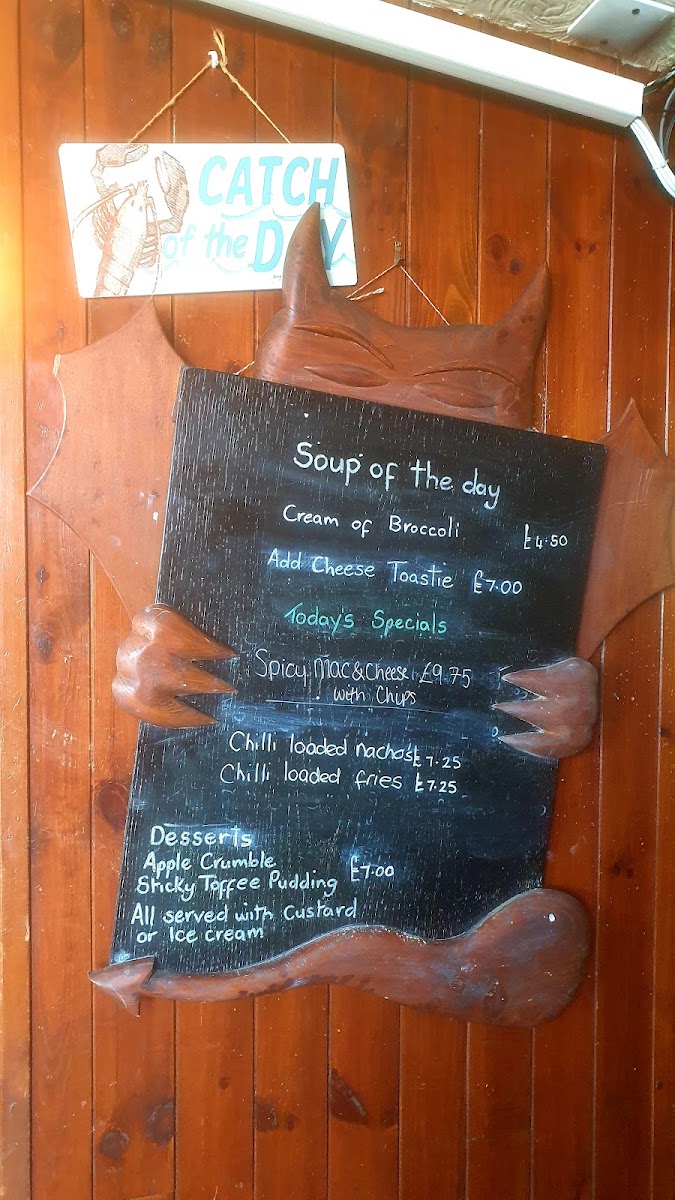 CATCH
of the DAY
Soup of the day
Cream of Broccoli £4.50
Add Cheese Toastie £7.00
Today's Specials
Spicy Mac & Cheese £9.75
with Chips
Chilli loaded nachos £7.25
Chilli loaded fries £7.25
Desserts
Apple Crumble £7.00
Sticky Toffee Pudding
All served with Custard
or Ice cream